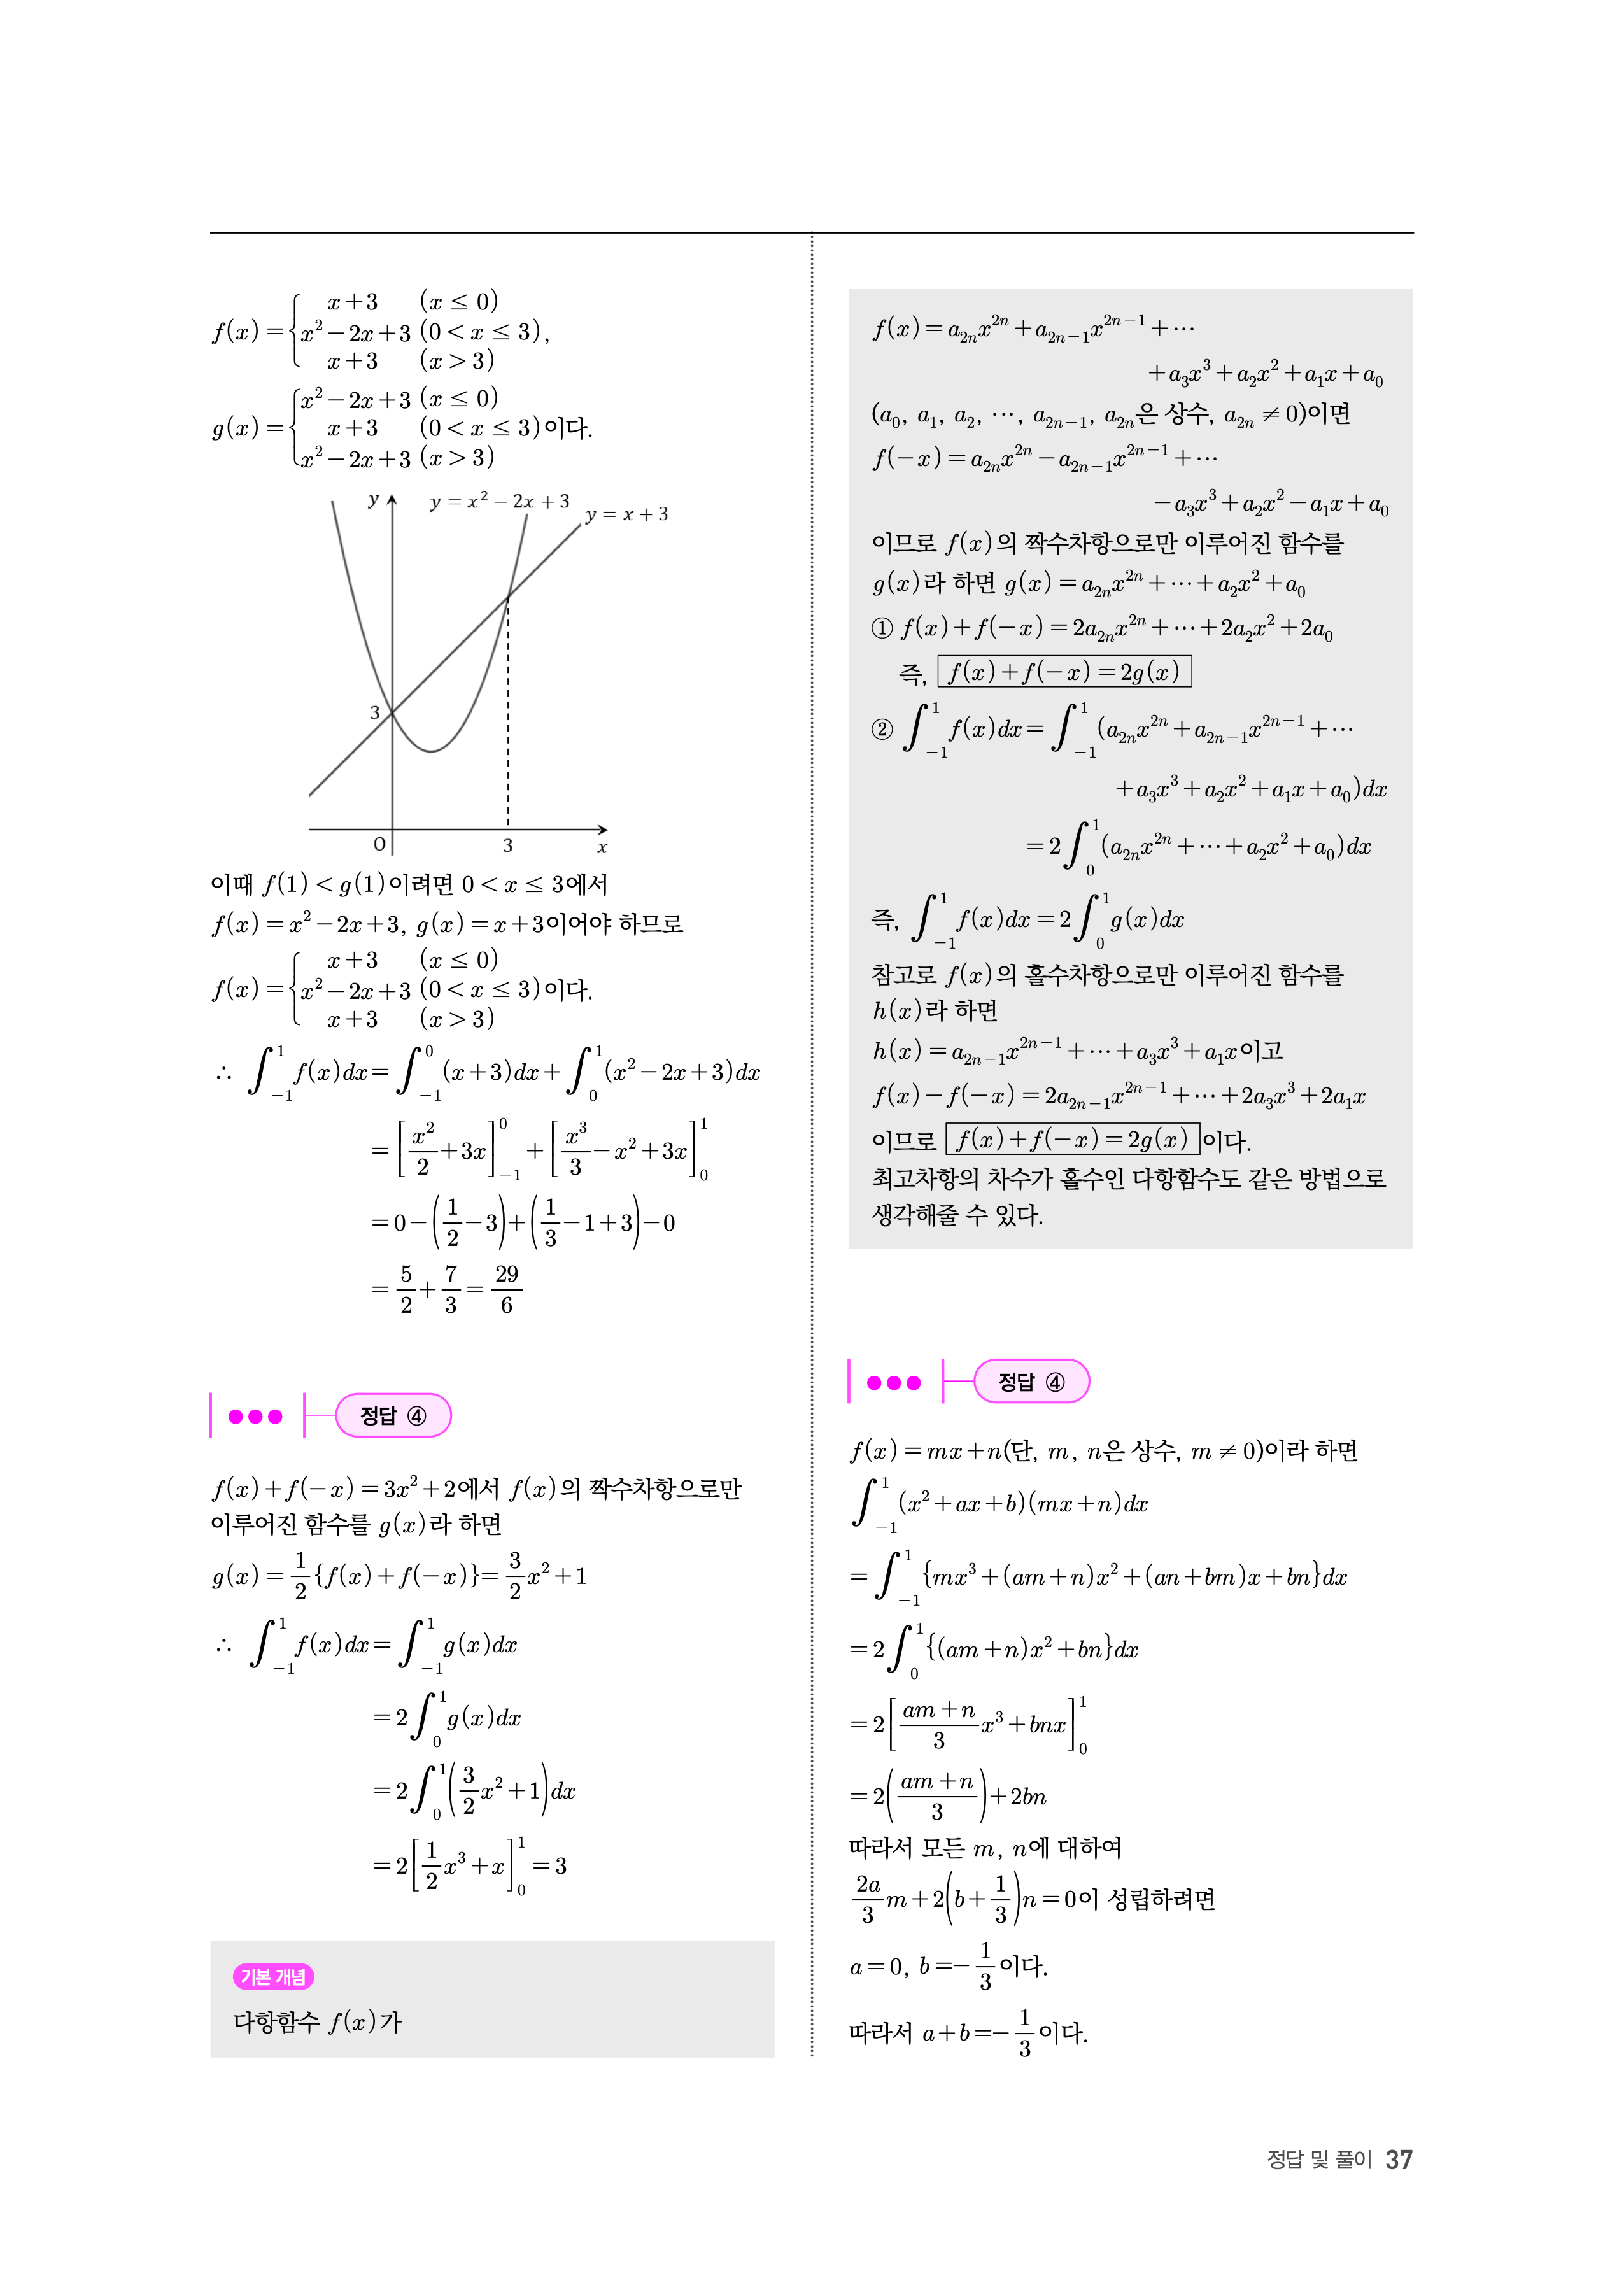 f(x)={ x+3 (x ≤ 0)
x²−2x+3 (0<x ≤ 3),
x+3 (x>3)
g(x)={ x²−2x+3 (x ≤ 0)
x+3 (0<x ≤ 3)이다.
x²−2x+3 (x>3)
y y = x² − 2x + 3
y = x + 3
3
O 3 x
이때 f(1)<g(1)이려면 0<x ≤ 3에서
f(x)=x²−2x+3, g(x)=x+3이어야 하므로
f(x)={ x+3 (x ≤ 0)
x²−2x+3 (0<x ≤ 3)이다.
x+3 (x>3)
∴ ∫_{−1}^{1} f(x)dx=∫_{−1}^{0}(x+3)dx+∫_{0}^{1}(x²−2x+3)dx
=[x²/2+3x]_{−1}^{0}+[x³/3−x²+3x]_{0}^{1}
=0−(1/2−3)+(1/3−1+3)−0
=5/2+7/3=29/6
정답 ④
f(x)+f(−x)=3x²+2에서 f(x)의 짝수차항으로만
이루어진 함수를 g(x)라 하면
g(x)=1/2{f(x)+f(−x)}=3/2x²+1
∴ ∫_{−1}^{1} f(x)dx=∫_{−1}^{1} g(x)dx
=2∫_{0}^{1} g(x)dx
=2∫_{0}^{1}(3/2x²+1)dx
=2[1/2x³+x]_{0}^{1}=3
기본 개념
다항함수 f(x)가
f(x)=a_{2n}x^{2n}+a_{2n−1}x^{2n−1}+⋯
+a₃x³+a₂x²+a₁x+a₀
(a₀, a₁, a₂, ⋯, a_{2n−1}, a_{2n}은 상수, a_{2n} ≠ 0)이면
f(−x)=a_{2n}x^{2n}−a_{2n−1}x^{2n−1}+⋯
−a₃x³+a₂x²−a₁x+a₀
이므로 f(x)의 짝수차항으로만 이루어진 함수를
g(x)라 하면 g(x)=a_{2n}x^{2n}+⋯+a₂x²+a₀
① f(x)+f(−x)=2a_{2n}x^{2n}+⋯+2a₂x²+2a₀
즉, f(x)+f(−x)=2g(x)
② ∫_{−1}^{1} f(x)dx=∫_{−1}^{1}(a_{2n}x^{2n}+a_{2n−1}x^{2n−1}+⋯
+a₃x³+a₂x²+a₁x+a₀)dx
=2∫_{0}^{1}(a_{2n}x^{2n}+⋯+a₂x²+a₀)dx
즉, ∫_{−1}^{1} f(x)dx=2∫_{0}^{1} g(x)dx
참고로 f(x)의 홀수차항으로만 이루어진 함수를
h(x)라 하면
h(x)=a_{2n−1}x^{2n−1}+⋯+a₃x³+a₁x이고
f(x)−f(−x)=2a_{2n−1}x^{2n−1}+⋯+2a₃x³+2a₁x
이므로 f(x)+f(−x)=2g(x) 이다.
최고차항의 차수가 홀수인 다항함수도 같은 방법으로
생각해줄 수 있다.
정답 ④
f(x)=mx+n(단, m, n은 상수, m ≠ 0)이라 하면
∫_{−1}^{1}(x²+ax+b)(mx+n)dx
=∫_{−1}^{1}{mx³+(am+n)x²+(an+bm)x+bn}dx
=2∫_{0}^{1}{(am+n)x²+bn}dx
=2[(am+n)/3 x³+bnx]_{0}^{1}
=2((am+n)/3)+2bn
따라서 모든 m, n에 대하여
2a/3 m+2(b+1/3)n=0이 성립하려면
a=0, b=−1/3이다.
따라서 a+b=−1/3이다.
정답 및 풀이 37